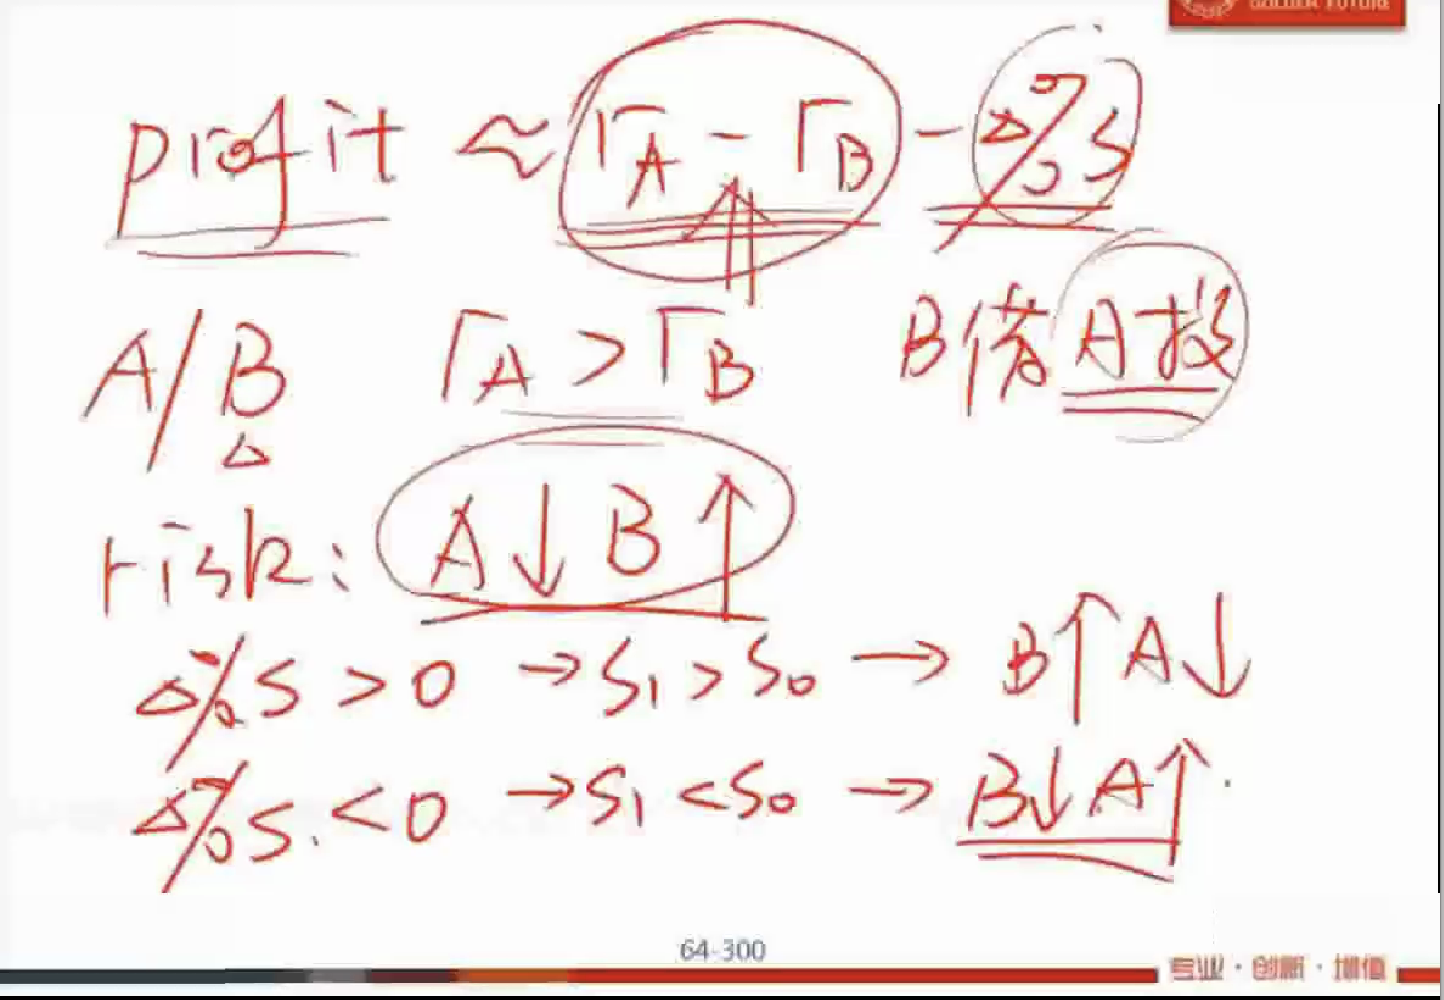 GOLDEN FUTURE
profit ≈ rA - rB - Δ%S
A/B rA > rB B借 A投
Δ
risk: A↓ B↑
Δ%S > 0 → S1 > S0 → B↑ A↓
Δ%S < 0 → S1 < S0 → B↓ A↑
64-300
专业·创新·增值